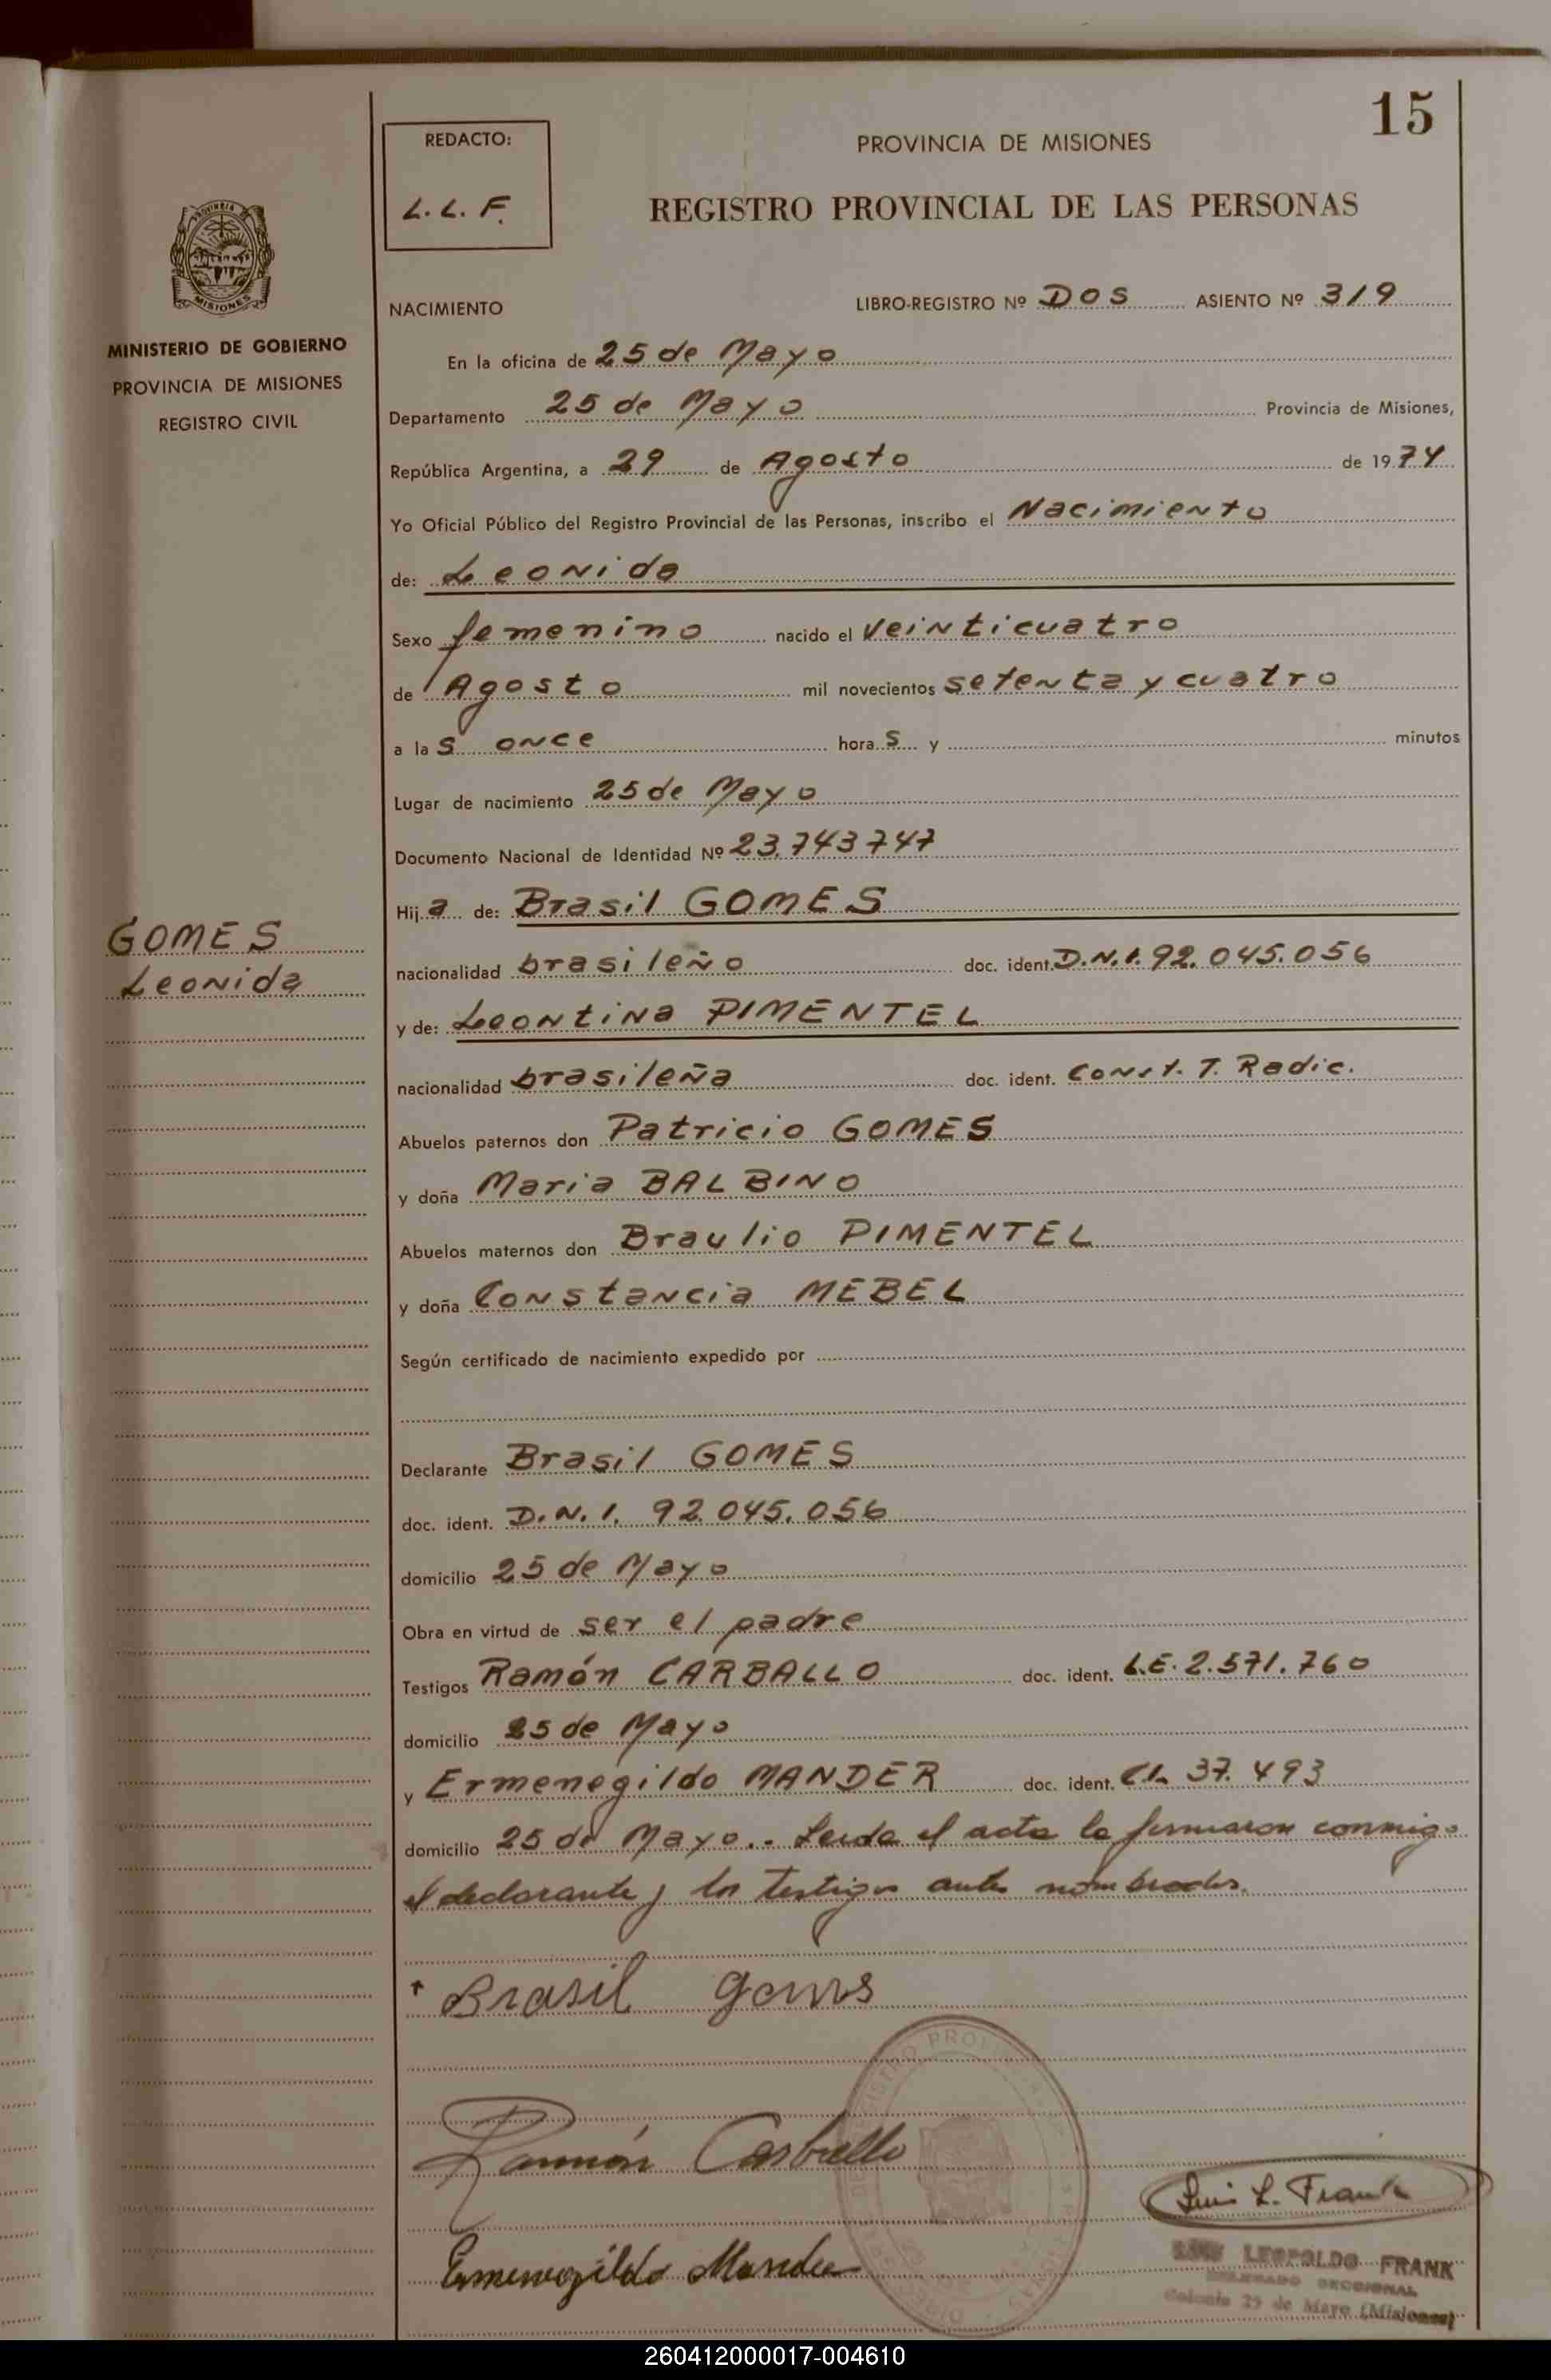 15
REDACTO:
L. L. F.
PROVINCIA DE MISIONES
REGISTRO PROVINCIAL DE LAS PERSONAS
MISIONES
MINISTERIO DE GOBIERNO
PROVINCIA DE MISIONES
REGISTRO CIVIL
NACIMIENTO LIBRO-REGISTRO Nº DOS ASIENTO Nº 319
En la oficina de 25 de Mayo
Departamento 25 de Mayo Provincia de Misiones,
República Argentina, a 29 de Agosto de 1974
Yo Oficial Público del Registro Provincial de las Personas, inscribo el Nacimiento
de: Leonida
Sexo femenino nacido el veinticuatro
de Agosto mil novecientos setenta y cuatro
a las once horas y minutos
Lugar de nacimiento 25 de Mayo
Documento Nacional de Identidad Nº 23.743747
Hija de: Brasil GOMES
GOMES
Leonida
nacionalidad brasileño doc. ident. D.N.I. 92.045.056
y de: Leontina PIMENTEL
nacionalidad brasileña doc. ident. Const. T. Radic.
Abuelos paternos don Patricio GOMES
y doña Maria BALBINO
Abuelos maternos don Braulio PIMENTEL
y doña Constancia MEBEL
Según certificado de nacimiento expedido por
Declarante Brasil GOMES
doc. ident. D.N.I. 92.045.056
domicilio 25 de Mayo
Obra en virtud de ser el padre
Testigos Ramón CARBALLO doc. ident. L.E. 2.571.760
domicilio 25 de Mayo
y Ermenegildo MANDER doc. ident. C.I. 37.493
domicilio 25 de Mayo.- Leida el acta la firmaron conmigo
el declarante y los testigos antes nombrados.
Brasil goms
Ramón Carballo
Luis L. Frank
Ermenegildo Mander
LUIS LEOPOLDO FRANK
DELEGADO SECCIONAL
Colonia 25 de Mayo (Misiones)
260412000017-004610